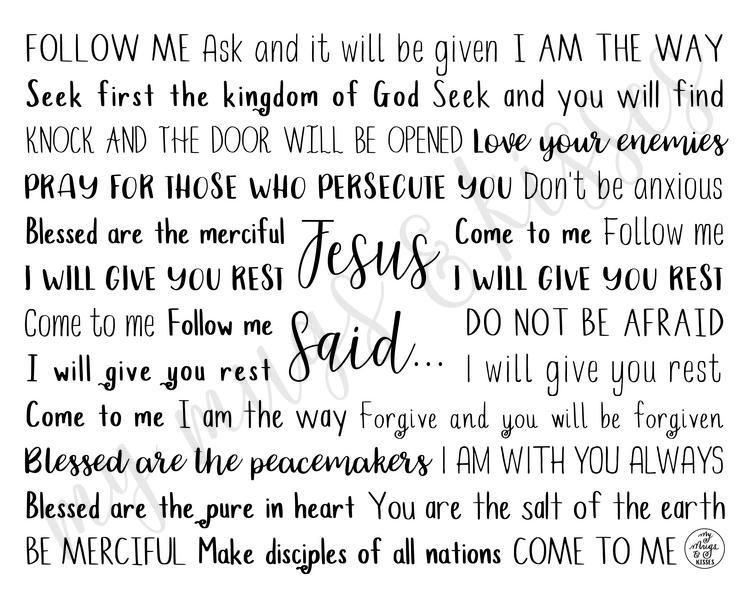 FOLLOW ME Ask and it will be given I AM THE WAY
Seek first the kingdom of God Seek and you will find
KNOCK AND THE DOOR WILL BE OPENED Love your enemies
PRAY FOR THOSE WHO PERSECUTE YOU Don't be anxious
Blessed are the merciful Jesus Come to me Follow me
I WILL GIVE YOU REST I WILL GIVE YOU REST
Come to me Follow me Said... DO NOT BE AFRAID
I will give you rest I will give you rest
Come to me I am the way Forgive and you will be forgiven
Blessed are the peacemakers I AM WITH YOU ALWAYS
Blessed are the pure in heart You are the salt of the earth
BE MERCIFUL Make disciples of all nations COME TO ME
my
Mugs
&
KISSES
my mugs & kisses